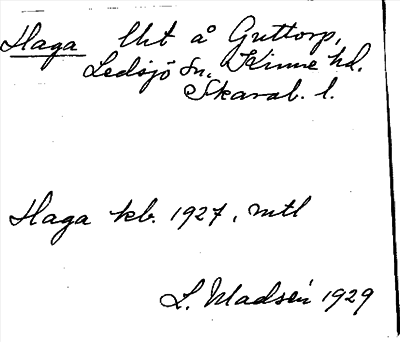 Haga lht å Guttorp,
Ledsjö sn, Kinne hd.
Skarab. l.
Haga kb. 1927, mtl
L. Madsén 1929